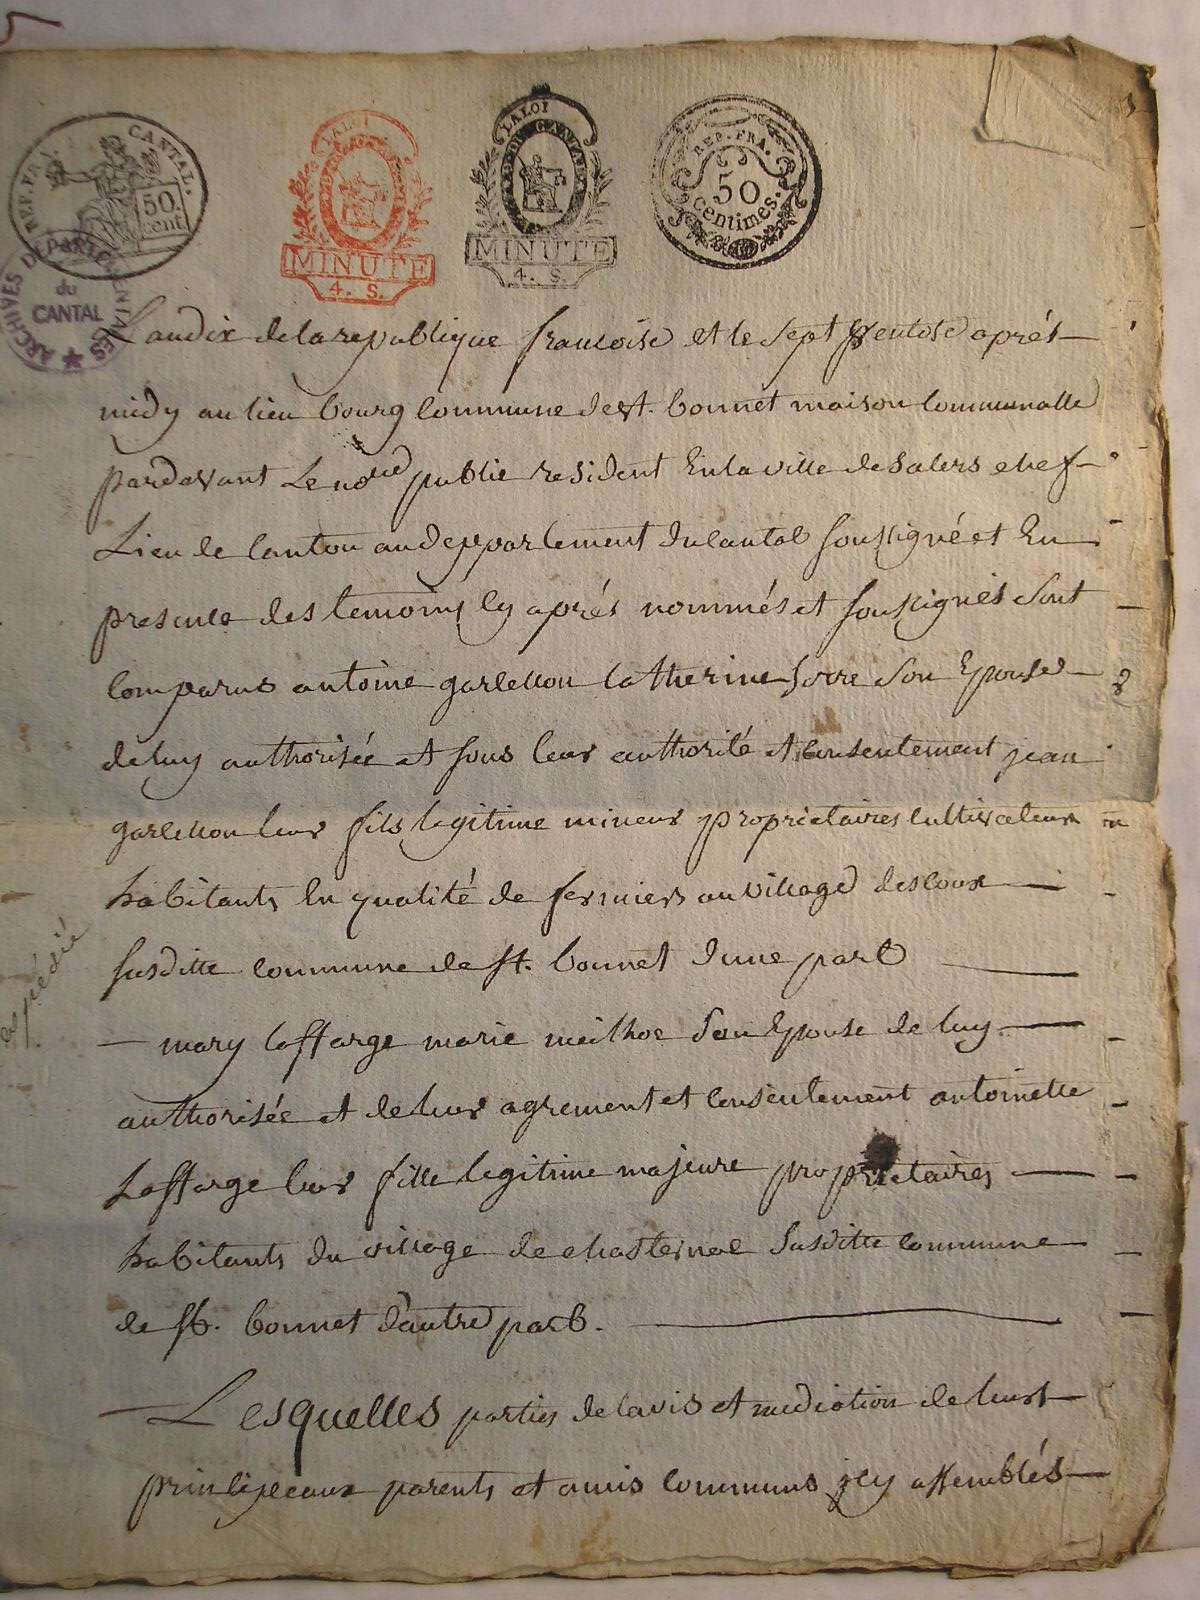 REP. FRA. CANTAL.
50.
cent
ARCHIVES DÉPARTEMENTALES
du
CANTAL
LA LOI
MINUTE
4. S.
LA LOI
DP. DU CANTAL
MINUTE
4. S.
REP. FRA.
50
centimes.
L'an dix de la republique francoise et le sept ventose aprés
midy au lieu bourg commune de st. bonnet maison communalle
pardevant Le no.re public resident En la ville de salers chef
Lieu de canton au depparlement du cantal soussigné et En
presence des temoins cy aprés nommés et soussignés sont
comparus antoine garcellon catherine serre son Epouse
de luy authorisée et sous leur authorité et consentement jean
garcellon leur fils legitime mineur proprietaires cultivateurs
habitants En qualité de fermiers au village des coux
susditte commune de st. bonnet d'une part
mary laffarge marie meilhoc son Epouse de luy
authorisée et de leur agrement et consentement antoinette
Laffarge leur fille legitime majeure proprietaires
habitants du village de chasternac susditte commune
de st. bonnet d'autre part.
Lesquelles parties de l'avis et mediation de leurs
principeaux parents et amis communs jcy assemblés
expédié